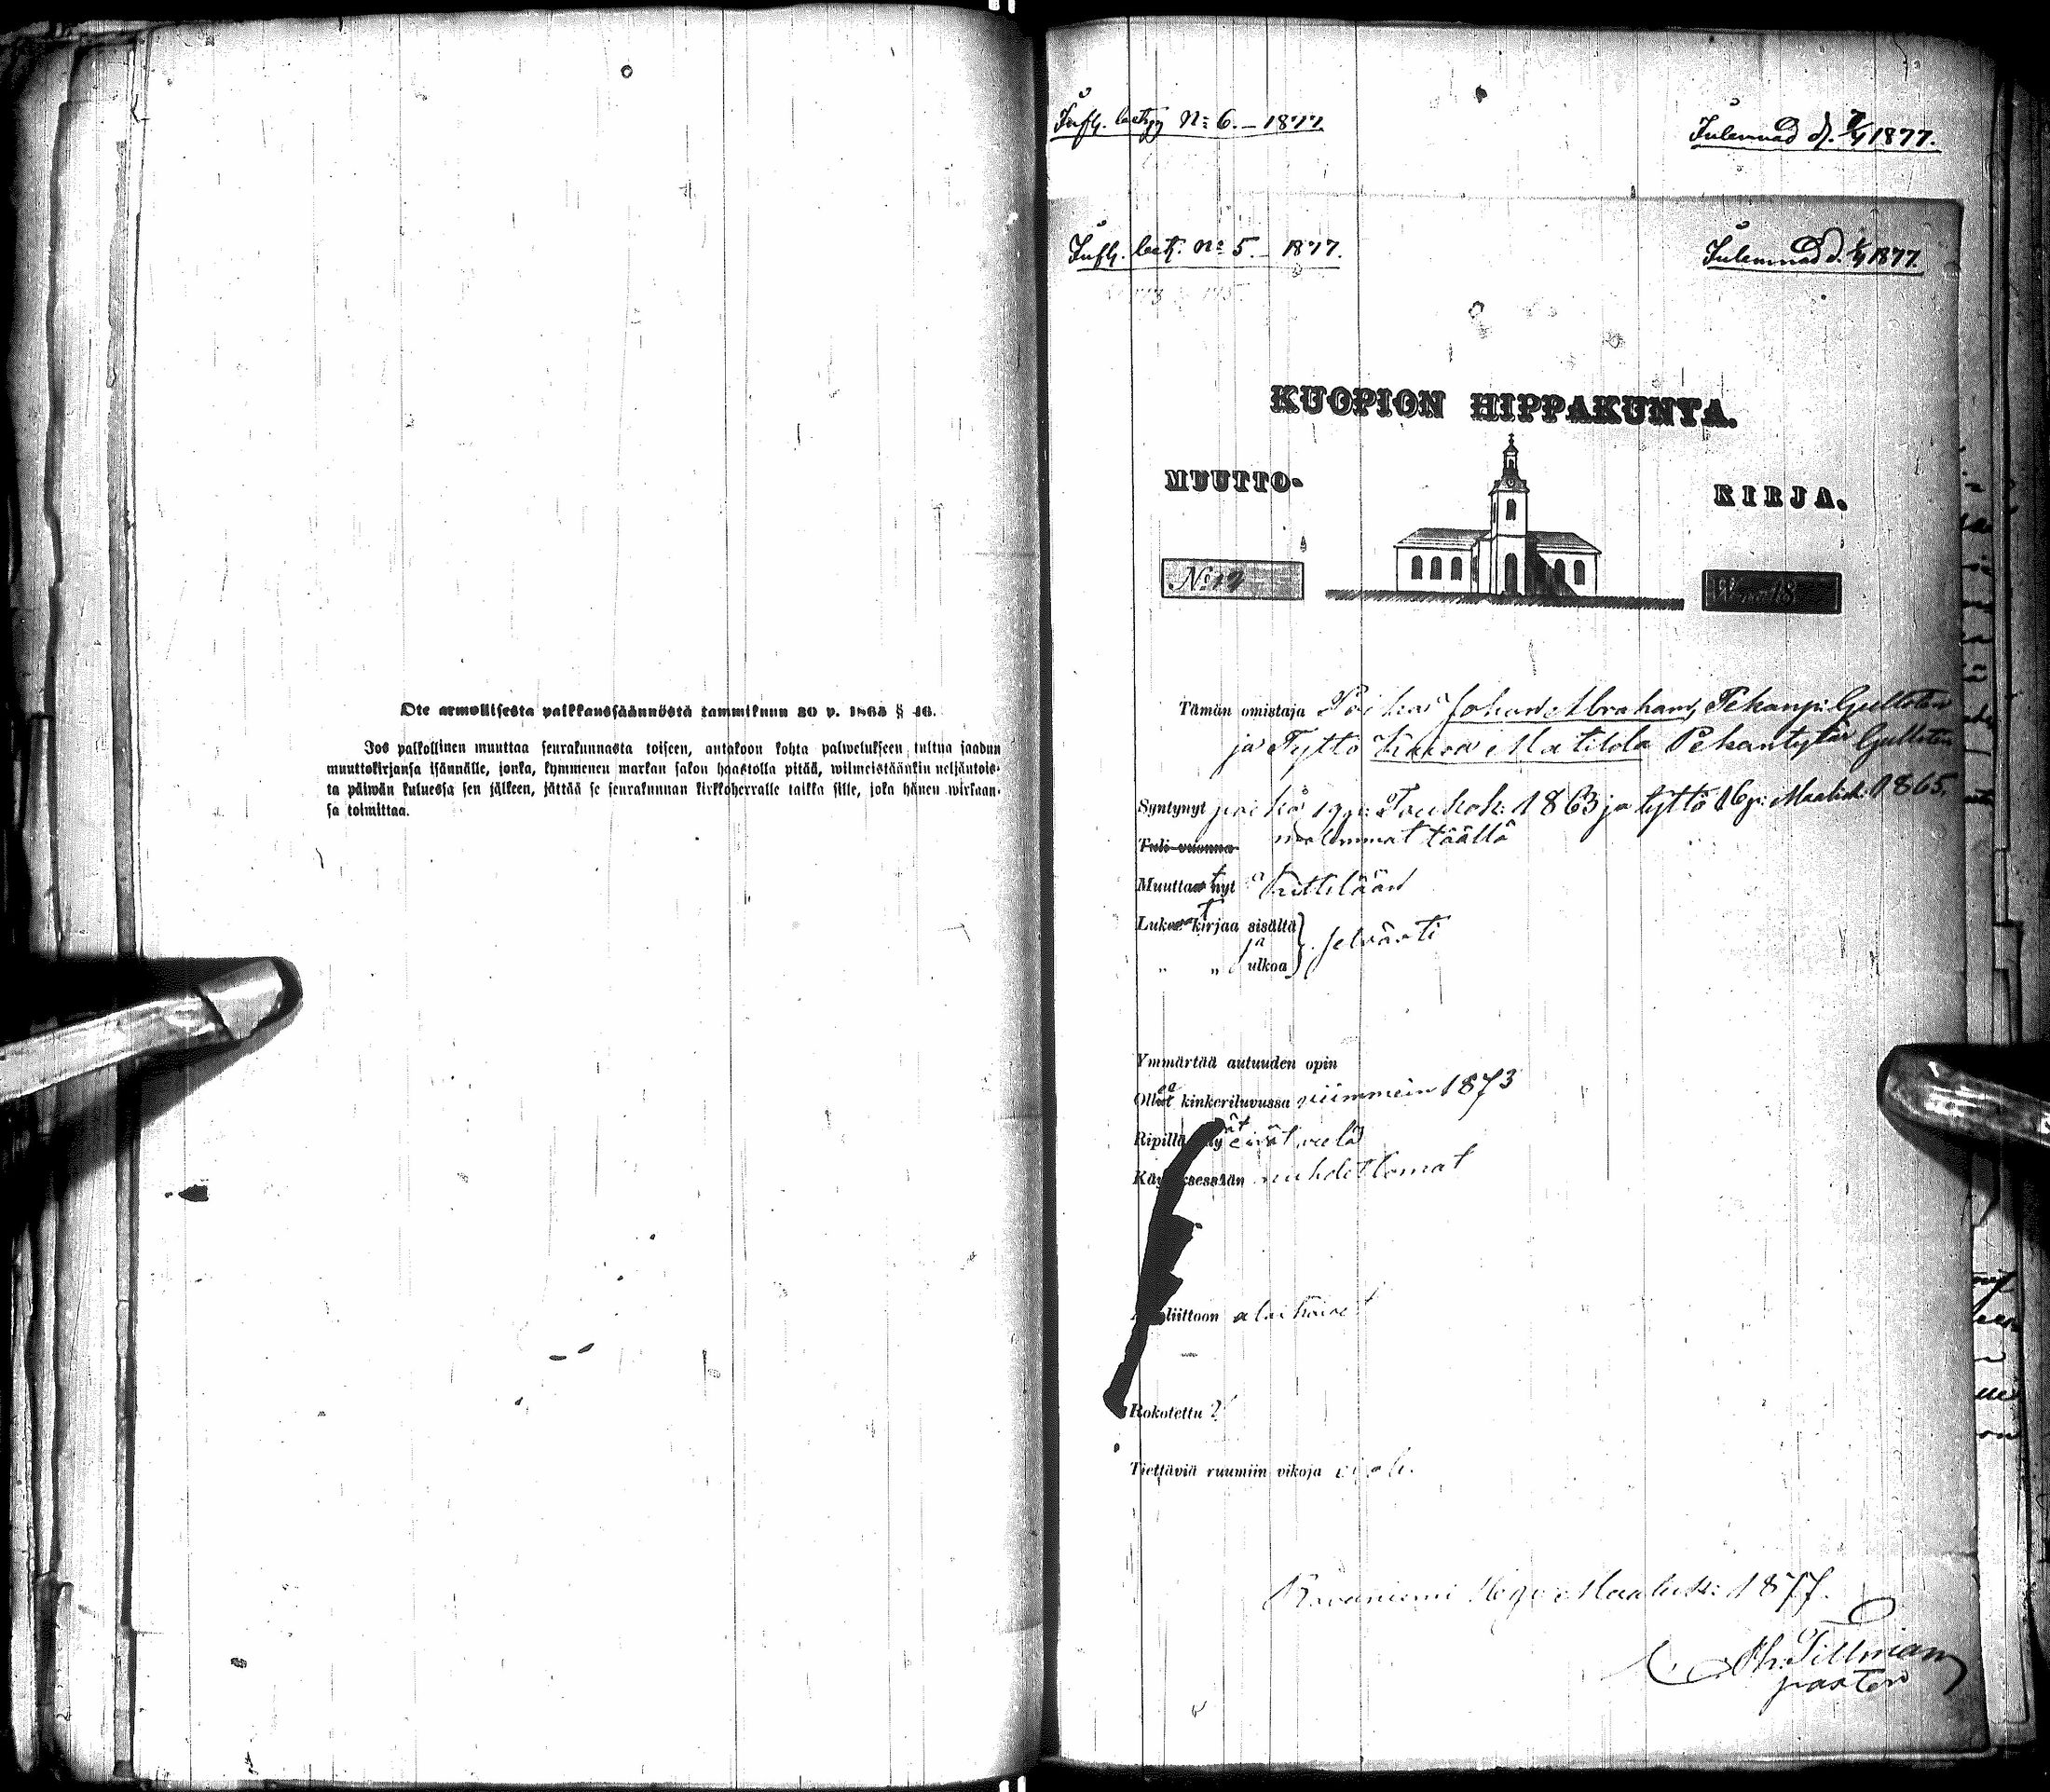 Ote armollisesta palkkaussäännöstä tammikuun 30 p. 1865 § 46.
Jos palkollinen muuttaa seurakunnasta toiseen, antakoon kohta palwelukseen tultua saadun
muuttokirjansa isännälle, jonka, kymmenen markan sakon haastolla pitää, wiimeistäänkin neljäntois-
ta päiwän kuluessa sen jälkeen, jättää se seurakunnan kirkkoherralle taikka sille, joka hänen wirkaan-
sa toimittaa.
No 6. – 1877.
Inlemnad d. 7/4 1877.
No 5. – 1877.
Inlemnad d. 1877.
KUOPION HIPPAKUNTA.
MUUTTO-
KIRJA.
No
W. 18
Tämän omistaja Poika Johan Abraham, Pekanp:
ja Tyttö Matilda Pekantytär
Syntynyt poika 19 p: Toukok: 1863 ja tyttö 16 p: Maalisk: 1865.
Tuli vuonna molemmat täällä
Muuttaat nyt Kittilään
Lukevat kirjaa sisältä
ja
" " ulkoa } selvästi
Ymmärtää autuuden opin
Olleet kinkeriluvussa viimmein 1873
Ripillä eivät vielä
nuhdettomat
liittoon alaikäiset
Rokotettu ?
Tiettäviä ruumiin vikoja ei ole.
Rovaniemi Maalisk: 1877.
Tillman
pastori